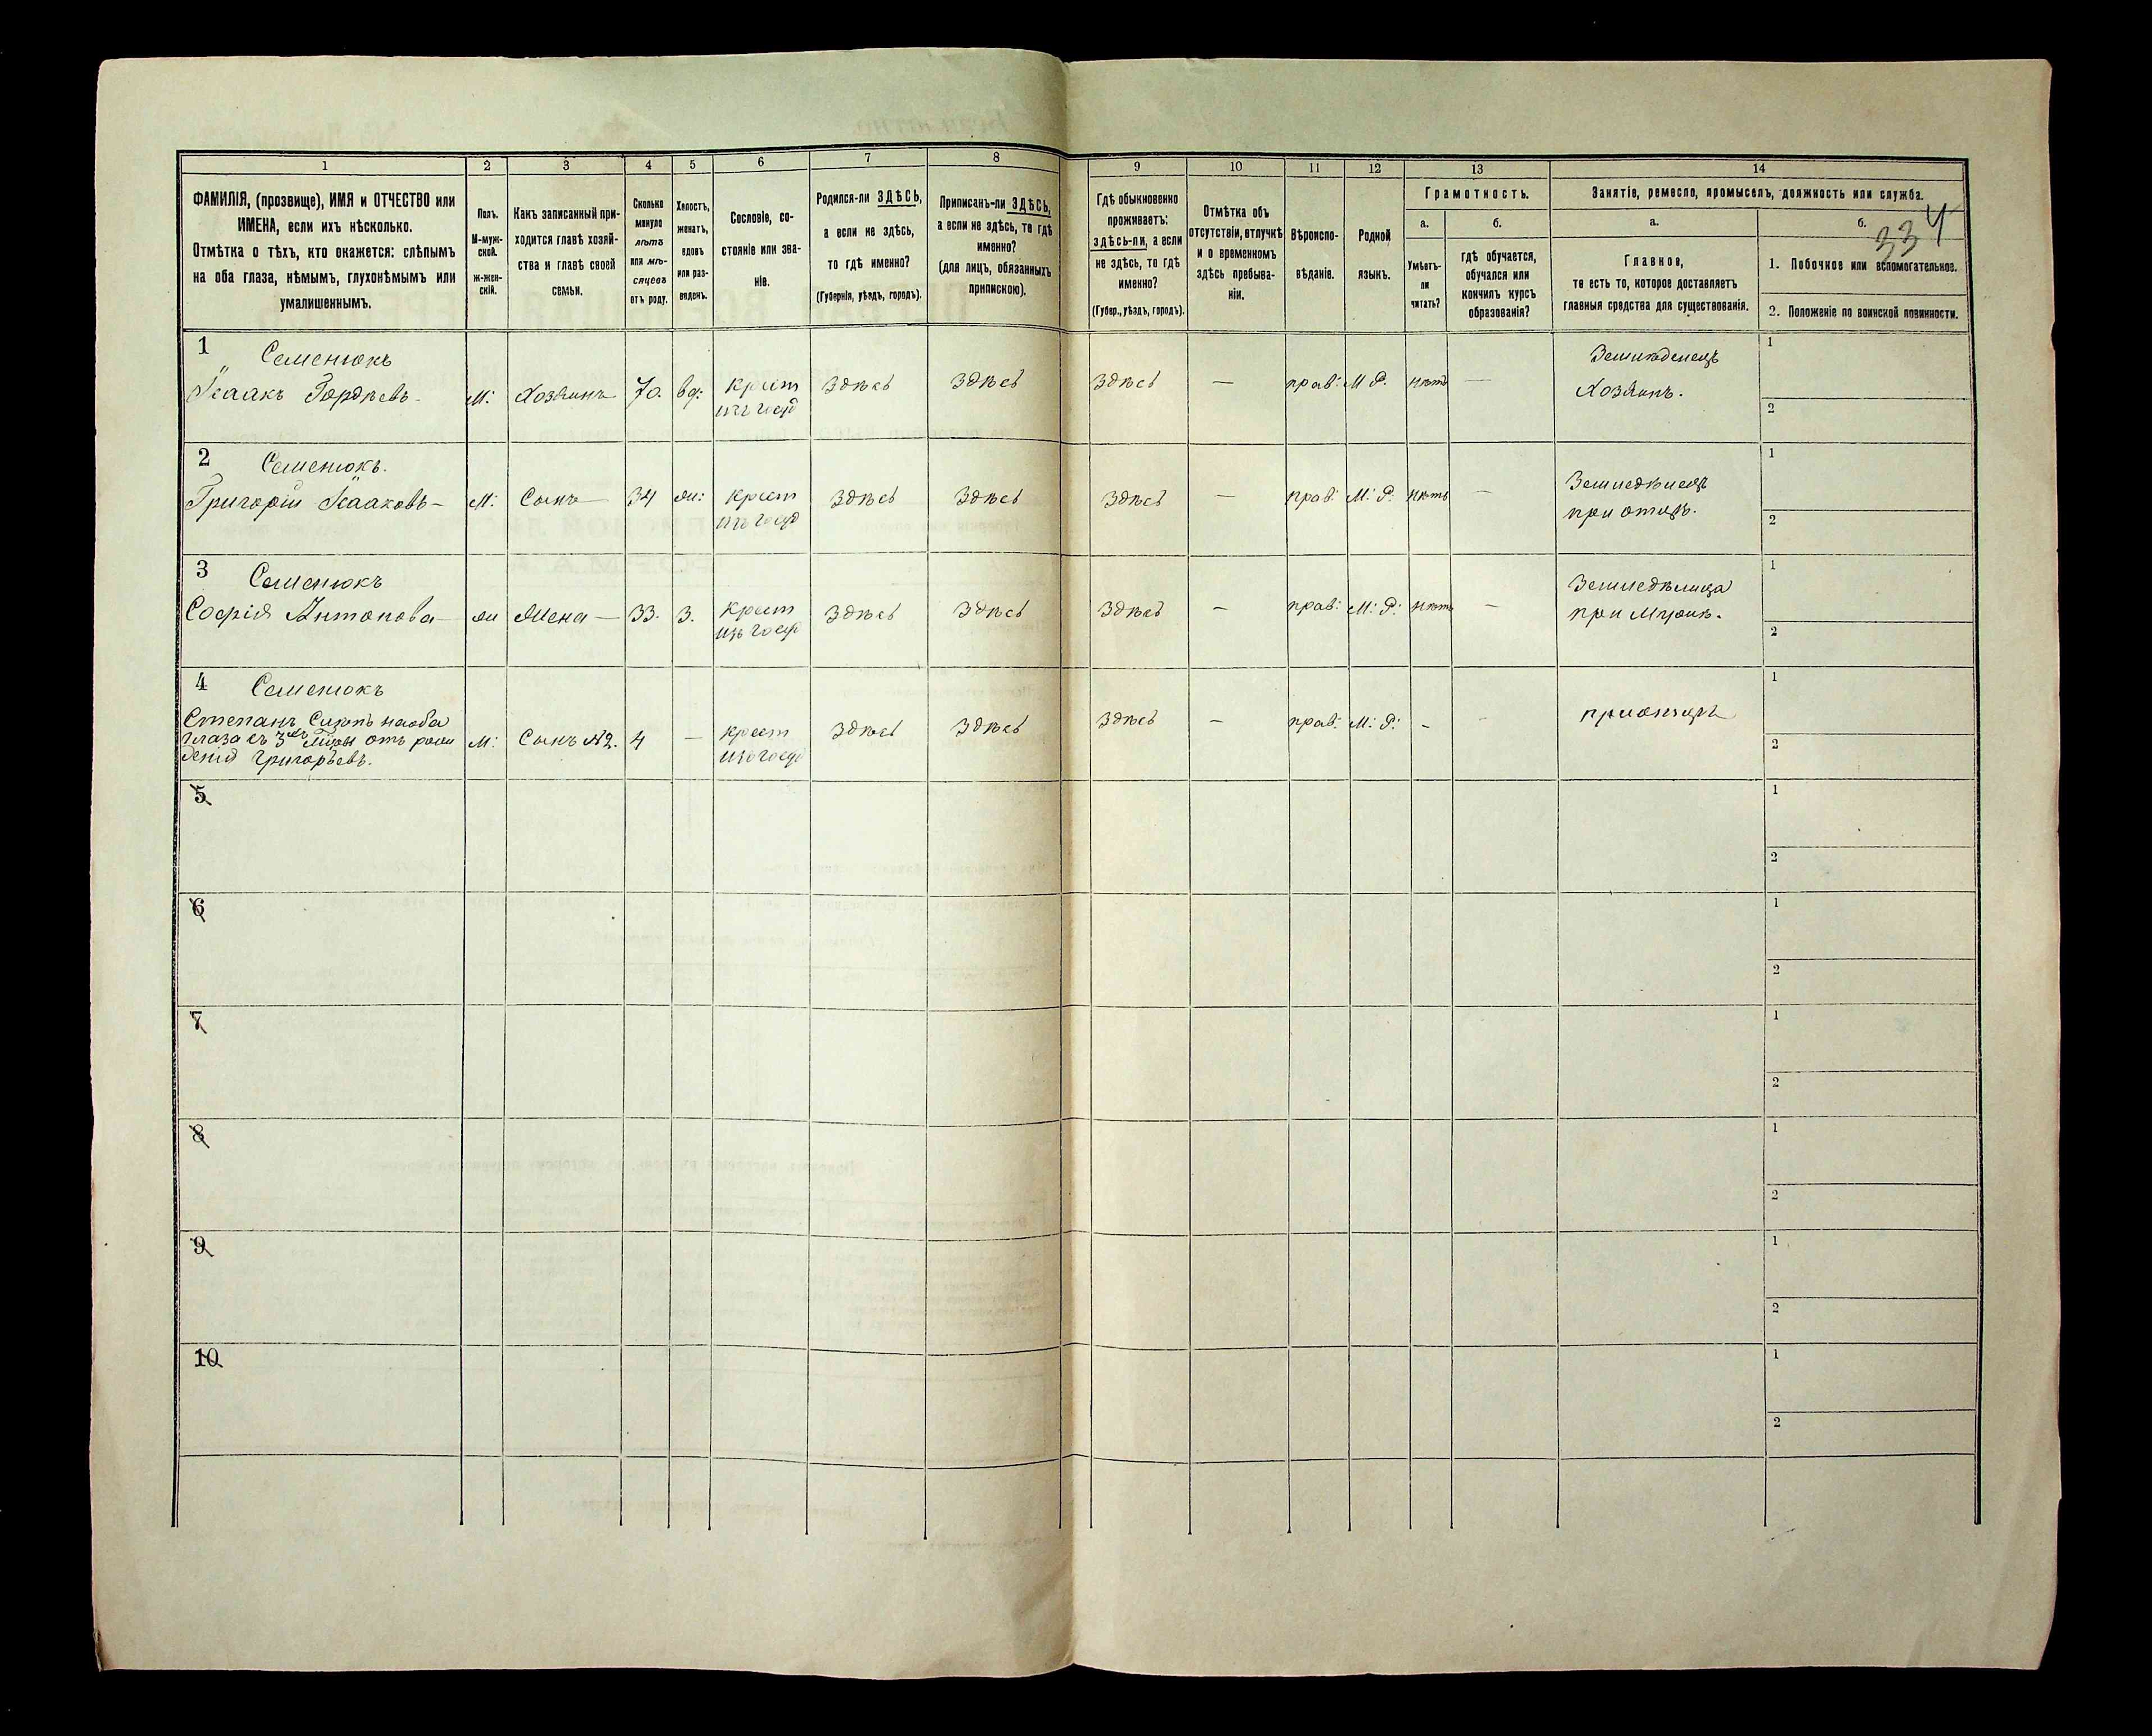 1 2 3 4 5 6 7 8 9 10 11 12 13 14
ФАМИЛІЯ, (прозвище), ИМЯ и ОТЧЕСТВО или
ИМЕНА, если ихъ нѣсколько.
Отмѣтка о тѣхъ, кто окажется: слѣпымъ
на оба глаза, нѣмымъ, глухонѣмымъ или
умалишеннымъ.
Полъ.
М-муж-
ской.
ж-жен-
скій.
Какъ записанный при-
ходится главѣ хозяй-
ства и главѣ своей
семьи.
Сколько
минуло
лѣтъ
или мѣ-
сяцевъ
отъ роду.
Холостъ,
женатъ,
вдовъ
или раз-
веденъ.
Сословіе, со-
стояніе или зва-
ніе.
Родился-ли ЗДѢСЬ,
а если не здѣсь,
то гдѣ именно?
(Губернія, уѣздъ, городъ).
Приписанъ-ли ЗДѢСЬ,
а если не здѣсь, то гдѣ
именно?
(для лицъ, обязанныхъ
припискою).
Гдѣ обыкновенно
проживаетъ:
здѣсь-ли, а если
не здѣсь, то гдѣ
именно?
(Губер., уѣздъ, городъ).
Отмѣтка объ
отсутствіи, отлучкѣ
и о временномъ
здѣсь пребыва-
ніи.
Вѣроиспо-
вѣданіе.
Родной
языкъ.
Грамотность.
а.
Умѣетъ-
ли
читать?
б.
гдѣ обучается,
обучался или
кончилъ курсъ
образованія?
Занятіе, ремесло, промыселъ, должность или служба.
а.
Главное,
то есть то, которое доставляетъ
главныя средства для существованія.
б.
334
1. Побочное или вспомогательное.
2. Положеніе по воинской повинности.
1 Семенюкъ
Исаакъ Гордѣевъ М: Хозяинъ 70. вд: крест
изъ госуд
Здѣсь Здѣсь Здѣсь — прав: М Р. нѣтъ —
Земледѣлецъ
Хозяинъ.
1
2
2 Семенюкъ.
Григорій Исааковъ — М: Сынъ — 34 ж: крест
изъ госуд
Здѣсь Здѣсь Здѣсь — прав: М: Р: нѣтъ —
Земледѣлецъ
при отцѣ.
1
2
3 Семенюкъ
Софія Антонова — ж Жена — 33. З. крест
изъ госуд
Здѣсь Здѣсь Здѣсь — прав: М: Р: нѣтъ —
Земледѣлица
при Мужѣ.
1
2
4 Семенюкъ
Степанъ Слѣпъ на оба
глаза съ 3хъ отъ рож
денія Григорьевъ.
М: Сынъ №2. 4 — крест
изъ госуд
Здѣсь Здѣсь Здѣсь — прав: М: Р: - -
при отцѣ
1
2
5
1
2
6
1
2
7
1
2
8
1
2
9
1
2
10
1
2